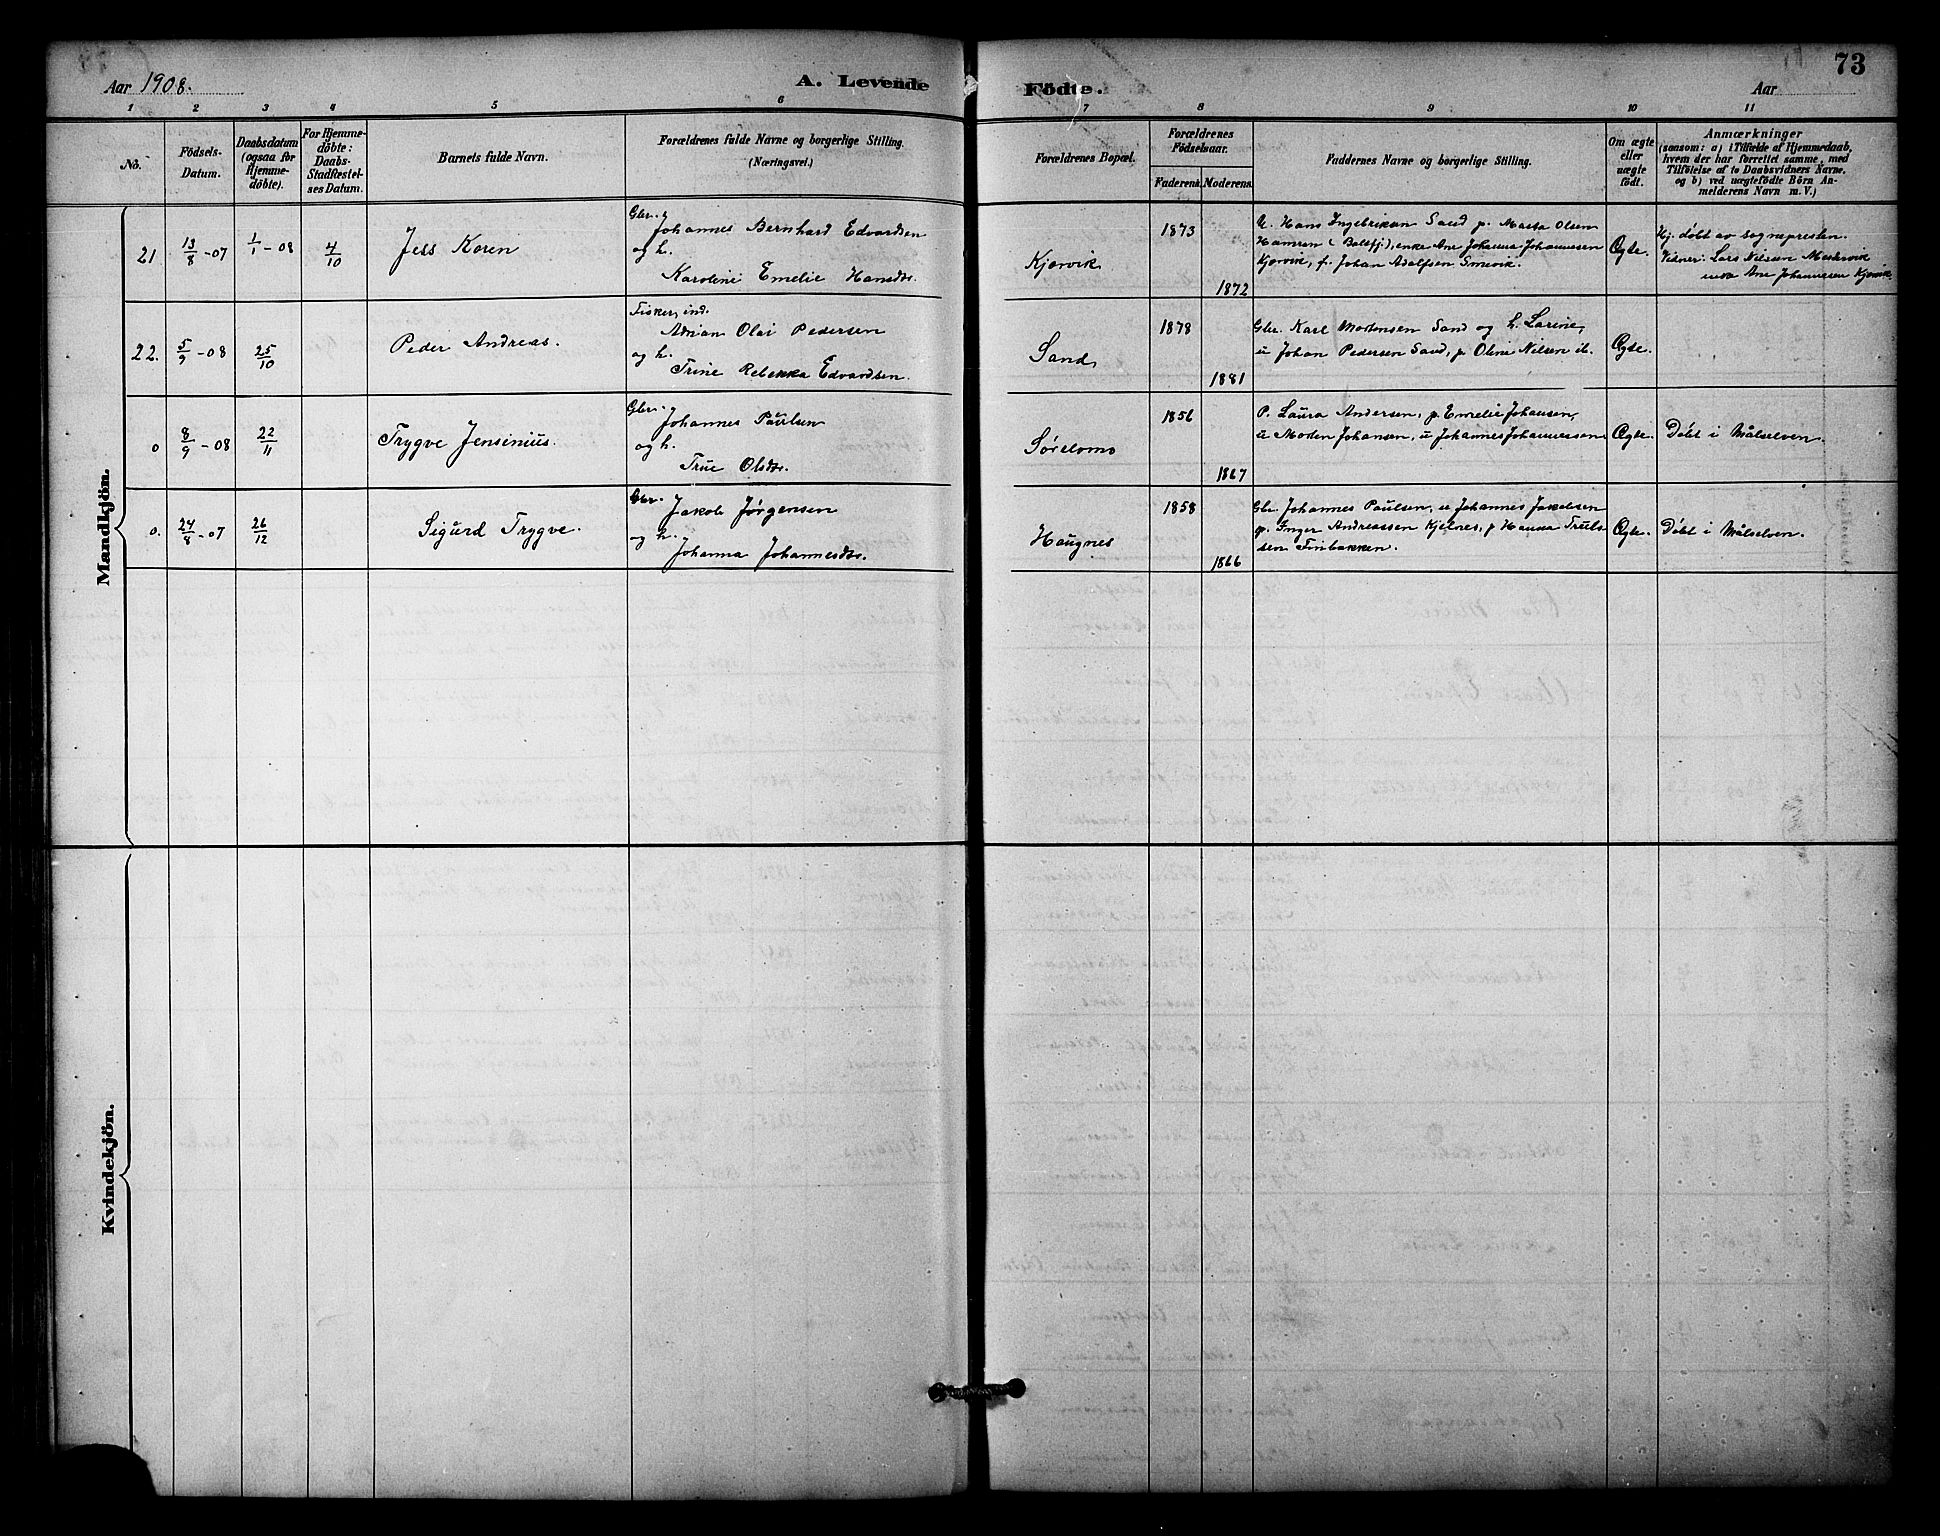 73
Aar 1908.
A. Levende
Födte.
Aar
1 2 3 4 5 6 7 8 9 10 11
No.
Födsels-
Datum.
Daabsdatum
(ogsaa for
Hjemme-
döbte).
For Hjemme-
döbte:
Daabs-
Stadfæstel-
ses Datum.
Barnets fulde Navn.
Forældrenes fulde Navne og borgerlige Stilling.
(Næringsvei.)
Forældrenes Bopæl.
Forældrenes
Födselsaar.
Faderens. Moderens.
Faddernes Navne og borgerlige Stilling.
Om ægte
eller
uægte
födt.
Anmærkninger
(saasom: a) i Tilfælde af Hjemmedaab,
hvem der har forrettet samme, med
Tilföielse af to Daabsvidners Navne.
og b) ved uægtefödte Börn An-
melderens Navn m. V.)
Mandkjön.
21 13/8 - 07 1/1 - 08 4/10 Jess Koren
Gbr. Johannes Bernhard Edvardsen
og h.
Karoline Emelie Hansdtr.
Kjørvik
1873
1872
U. Hans Ingebriktsen Sand p. Olsen
(Balsfj), enke Ane Johanna Johannesen
Kjørvik, f. Johan Adolfsen
Ægte.
Hj. døbt av sognepresten.
Vidner: Lars Nilsen
Ane Johannesen Kjørvik
22. 5/9 - 08 25/10 Peder Andreas.
Fisker, ind.
Adrian Olai Pedersen
og h.
Trine Rebekka Edvardsen.
Sand
1878
1881
Gbr. Karl Mortensen Sand og h. Larine,
u Johan Pedersen Sand, p Oline Nilsen ib.
Ægte.
0 8/9 - 08 22/11 Trygve Jensinius.
Gbr. Johannes Paulsen
og h.
Olsdtr.
1856
1867
P. Laura Andersen, p. Emelie Johansen,
u Morten Johansen, u Johannes Johannessen
Ægte. Døbt i Målselven.
0. 24/8 - 07 26/12 Sigurd Trygve.
Gbr. Jakob Jørgensen
og h.
Johanna Johannesdtr.
Haugnes
1858
1866
Gbr Johannes Paulsen, u Johannes Jakobsen
p. Inger Andreassen Kjelnes, p Hanna Truls-
sen Finbakken.
Ægte. Døbt i Målselven.
Kvindekjön.